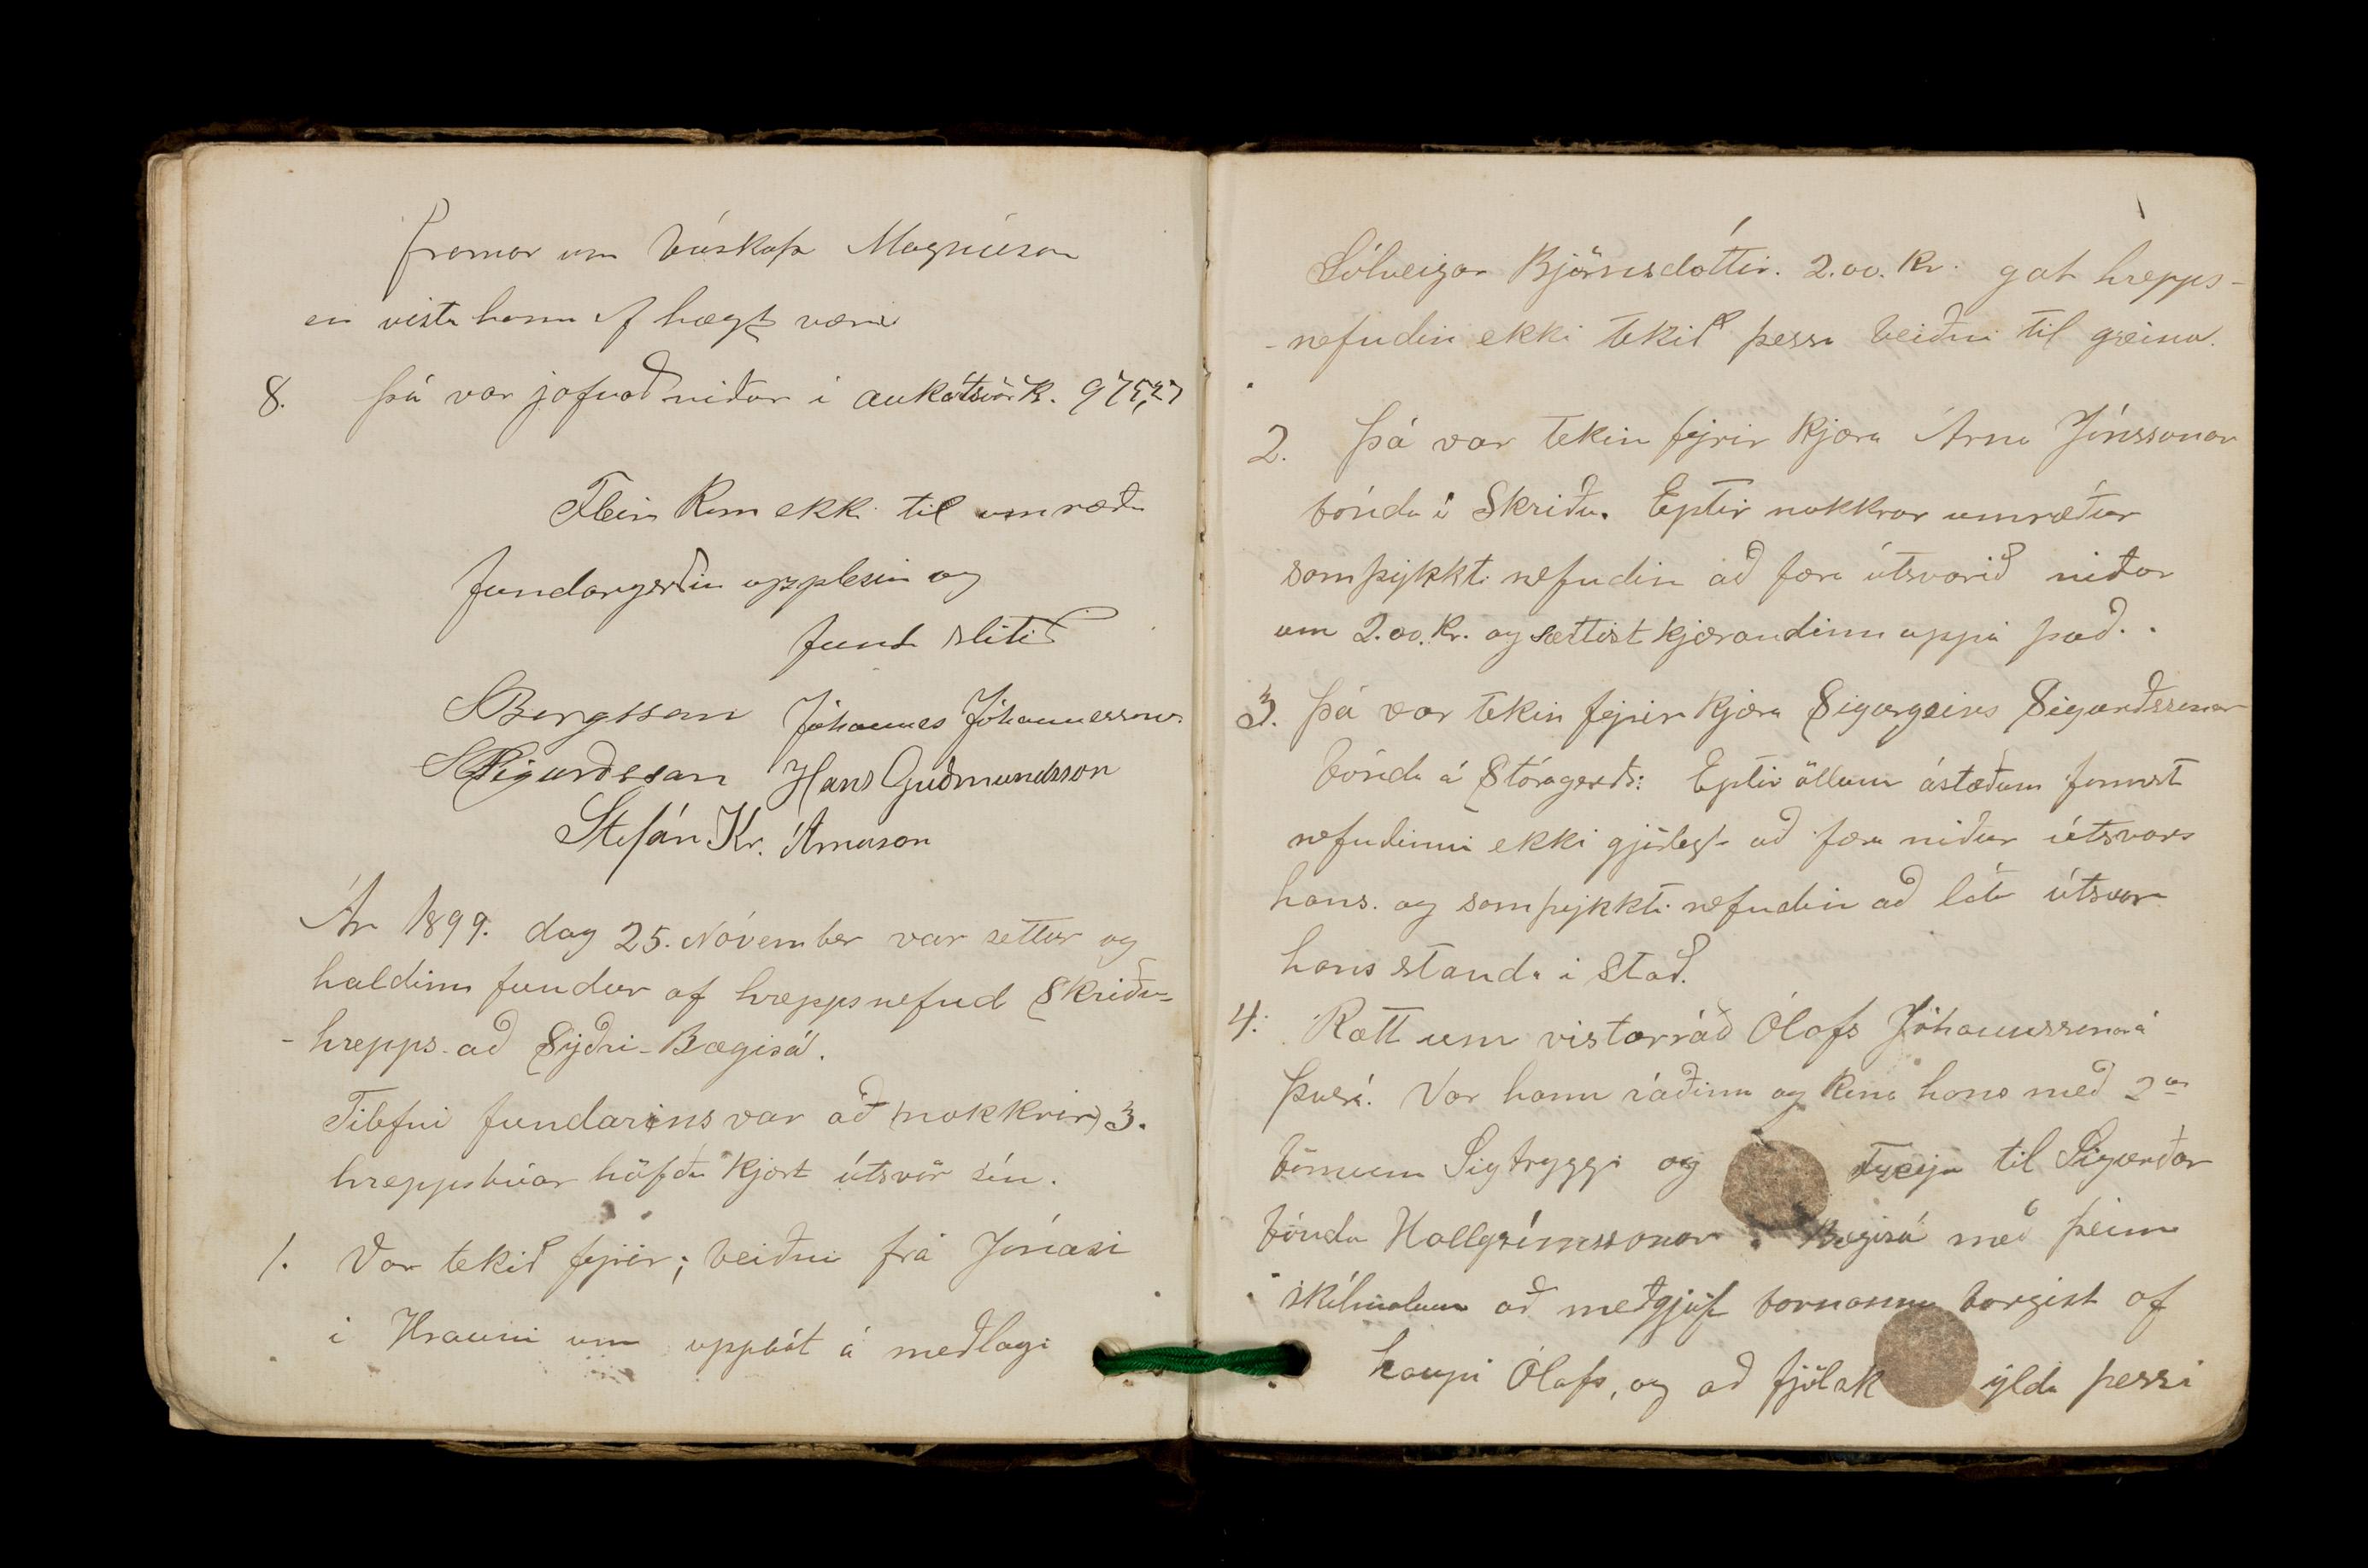 framar um búskap Magnúsar
en vista hann ef hægt væri
8. Þá var jafnað niður í aukaútsvör k. 975,27
Fleira kom ekki til umræðu
fundargerðin upplesin og
fundi slitið
SBergsson Jóhannes Jóhannesson
SSigurðsson Hans Guðmundsson
Stefán Kr. Árnason
Ár 1899. dag 25. Nóvember var settur og
haldinn fundur af hreppsnefnd Skriðu-
-hrepps að Syðri-Bægisá.
Tilefni fundarins var að (nokkrir) 3.
hreppsbúar höfðu kjært útsvör sín.
1. Var tekið fyrir; beiðni frá Jónasi
í Hrauni um uppbót á meðlagi
Sólveigar Björnsdóttir. 2.00. kr. gat hrepps-
-nefndin ekki tekið þessa beiðni til greina.
2. Þá var tekin fyrir kjæra Árna Jónssonar
bónda í Skriðu. Eptir nokkrar umræður
samþykkti nefndin að færa útsvarið niður
um 2.00. kr. og sættist kjærandinn uppá það.
3. Þá var tekin fyrir kjæra Sigurgeirs Sigurðssonar
bónda á Stóragerði: Eptir öllum ástæðum fannst
nefndinni ekki gjörlegt að færa niður útsvars
hans. og samþykkti nefndin að láta útsvar
hans standa í stað.
4. Rætt um vistarráð Ólafs Jóhannssonar á
Þverá. Var hann ráðinn og kona hans með 2ur
börnum Sigtryggi og Freyju til Sigurðar
bónda Hallgrímssonar Bægisá með þeim
skilmálum að meðgjöf barnanna borgist af
kaupi Ólafs, og að fjölsk ylda þessi